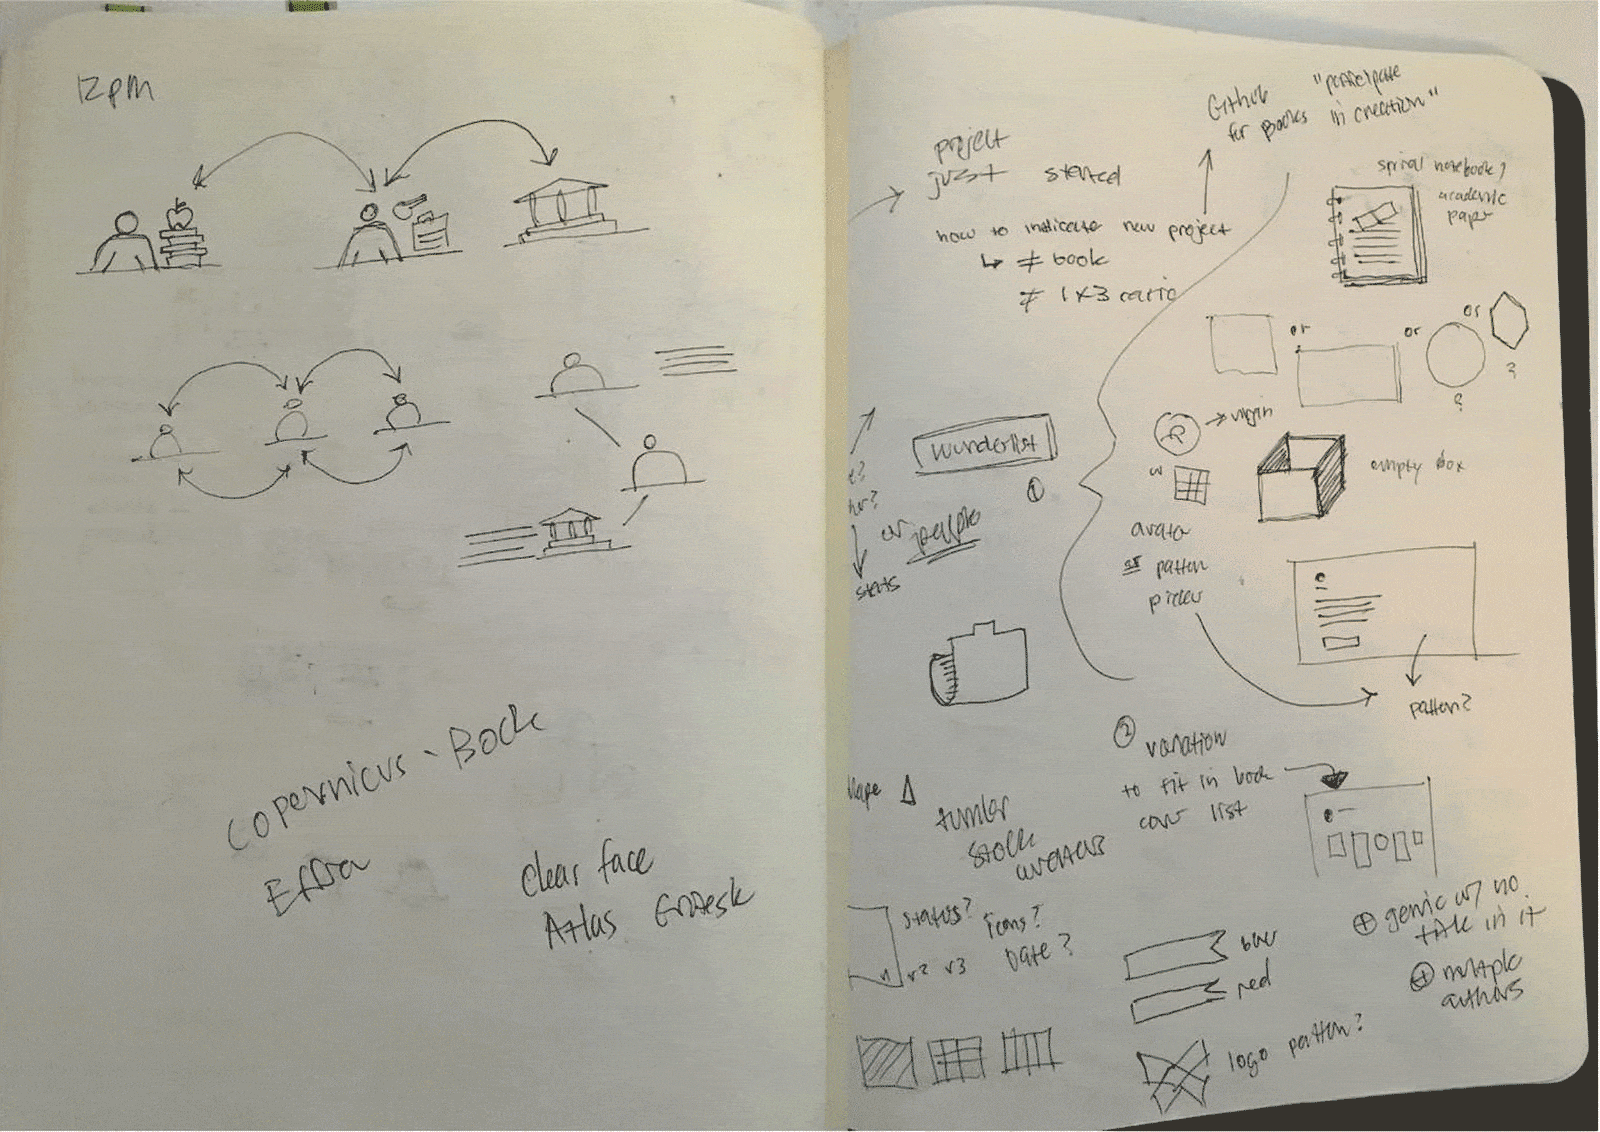 12pm
Copernicus - Book
Effra
Clear face
Atlas Grotesk
project
just started
how to indicate new project
↳ ≠ book
≠ 1x3 ratio
Github
for Books
"participate
in creation"
spiral notebook?
academic
paper
or
or
or
?
?
wunderlist
①
or people
starts
→ virgin
or
empty box
avatar
or pattern
picker
pattern?
② variation
to fit in book
cover list
tumblr
stock
avatars
status?
icons?
Date?
v2 v3
blue
red
logo pattern?
⊕ generic w/ no
title in it
⊕ multiple
authors